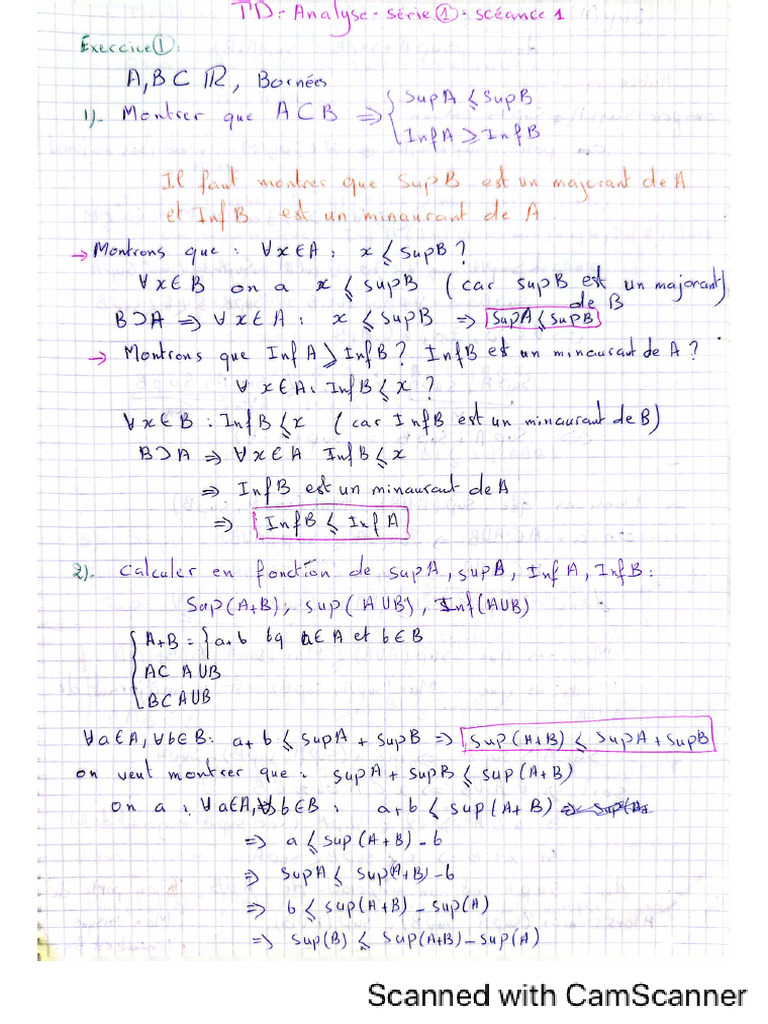 TD - Analyse - série ① : scéance 1
Exercice ① :
A, B ⊂ ℝ, Bornées
1). Montrer que A ⊂ B ⇒ { SupA ⩽ SupB
InfA ⩾ InfB
Il faut montrer que SupB est un majorant de A
et InfB est un minaurant de A.
→ Montrons que : ∀x∈A : x ⩽ SupB ?
∀x∈B on a x ⩽ supB (car supB est un majorant)
de B
B⊃A ⇒ ∀x∈A : x ⩽ SupB ⇒ SupA ⩽ SupB
→ Montrons que InfA ⩾ InfB ? InfB est un minaurant de A ?
∀ x∈A : InfB ⩽ x ?
∀x∈B : InfB ⩽ x (car InfB est un minaurant de B)
B⊃A ⇒ ∀x∈A InfB ⩽ x
⇒ InfB est un minaurant de A
⇒ InfB ⩽ InfA
2). Calculer en fonction de supA, supB, InfA, InfB :
Sup(A+B), sup(AUB), Inf(AUB)
{ A+B = { a+b tq a∈A et b∈B
A⊂ AUB
B⊂AUB
∀a∈A, ∀b∈B : a+b ⩽ supA + supB ⇒ Sup(A+B) ⩽ SupA + supB
on veut montrer que : supA + supB ⩽ sup(A+B)
on a : ∀a∈A, ∀b∈B : a+b ⩽ sup(A+B)
⇒ a ⩽ sup(A+B) - b
⇒ SupA ⩽ sup(A+B) - b
⇒ b ⩽ sup(A+B) - sup(A)
⇒ sup(B) ⩽ sup(A+B) - sup(A)
Scanned with CamScanner